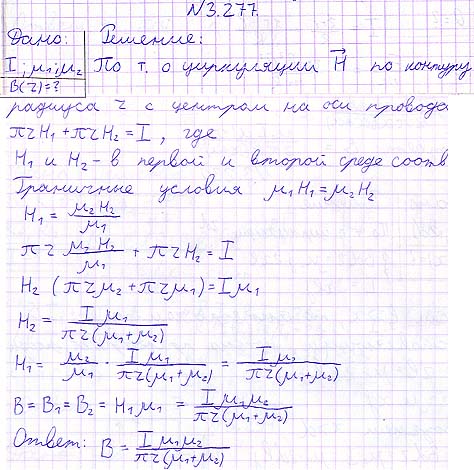 №3.277.
Дано: Решение:
I; μ₁; μ₂ По т. о циркуляции H⃗ по контуру
B(r)=?
радиуса r с центром на оси провода
πrH₁+πrH₂=I, где
H₁ и H₂ - в первой и второй среде соотв
Граничные условия μ₁H₁=μ₂H₂
H₁ = μ₂H₂/μ₁
πr μ₂H₂/μ₁ + πrH₂ = I
H₂ (πrμ₂+πrμ₁)=Iμ₁
H₂ = Iμ₁/πr(μ₁+μ₂)
H₁ = μ₂/μ₁ · Iμ₁/πr(μ₁+μ₂) = Iμ₂/πr(μ₁+μ₂)
B = B₁ = B₂ = H₁μ₁ = Iμ₁μ₂/πr(μ₁+μ₂)
Ответ: B = Iμ₁μ₂/πr(μ₁+μ₂)